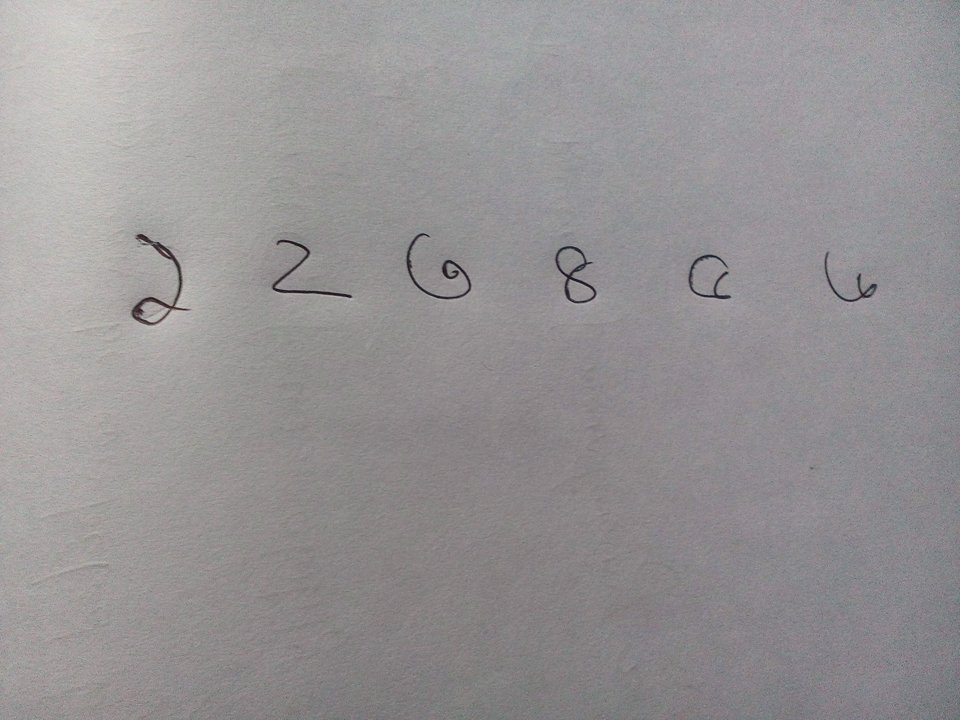 2 2 6 8 6 6